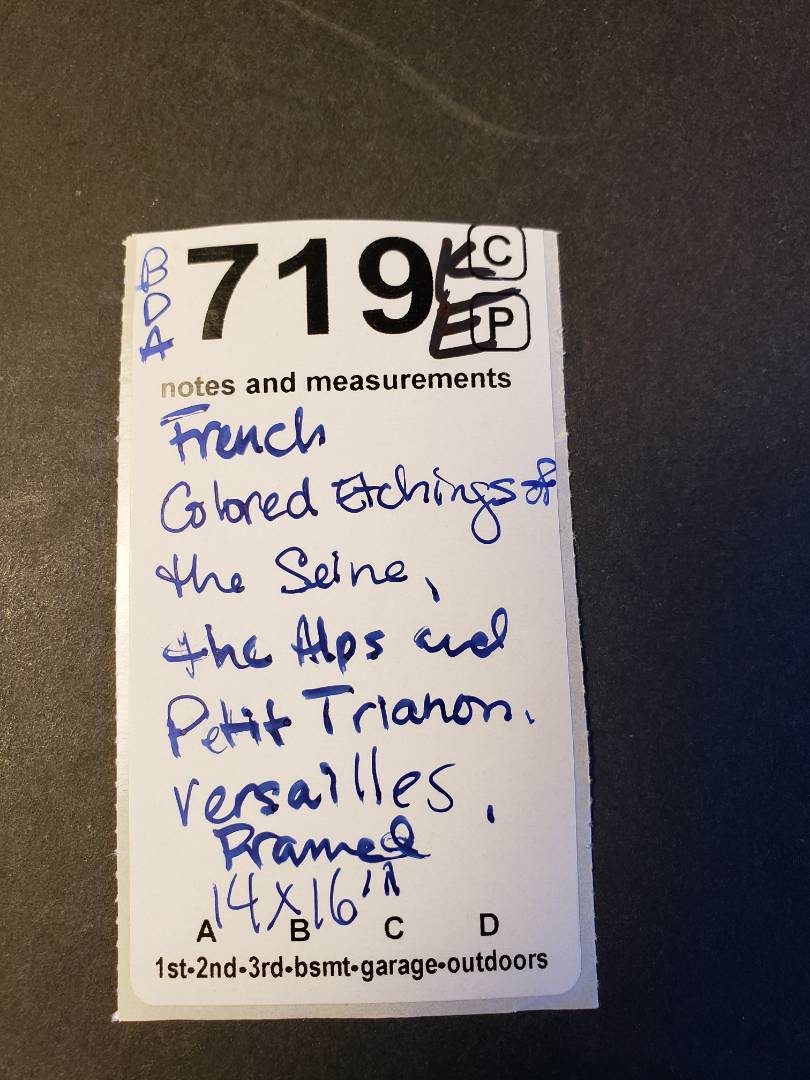 B
D
A
719 K C
E P
notes and measurements
French
Colored Etchings of
the Seine,
the Alps and
Petit Trianon.
Versailles,
Framed
14x16"
A B C D
1st•2nd•3rd•bsmt•garage•outdoors